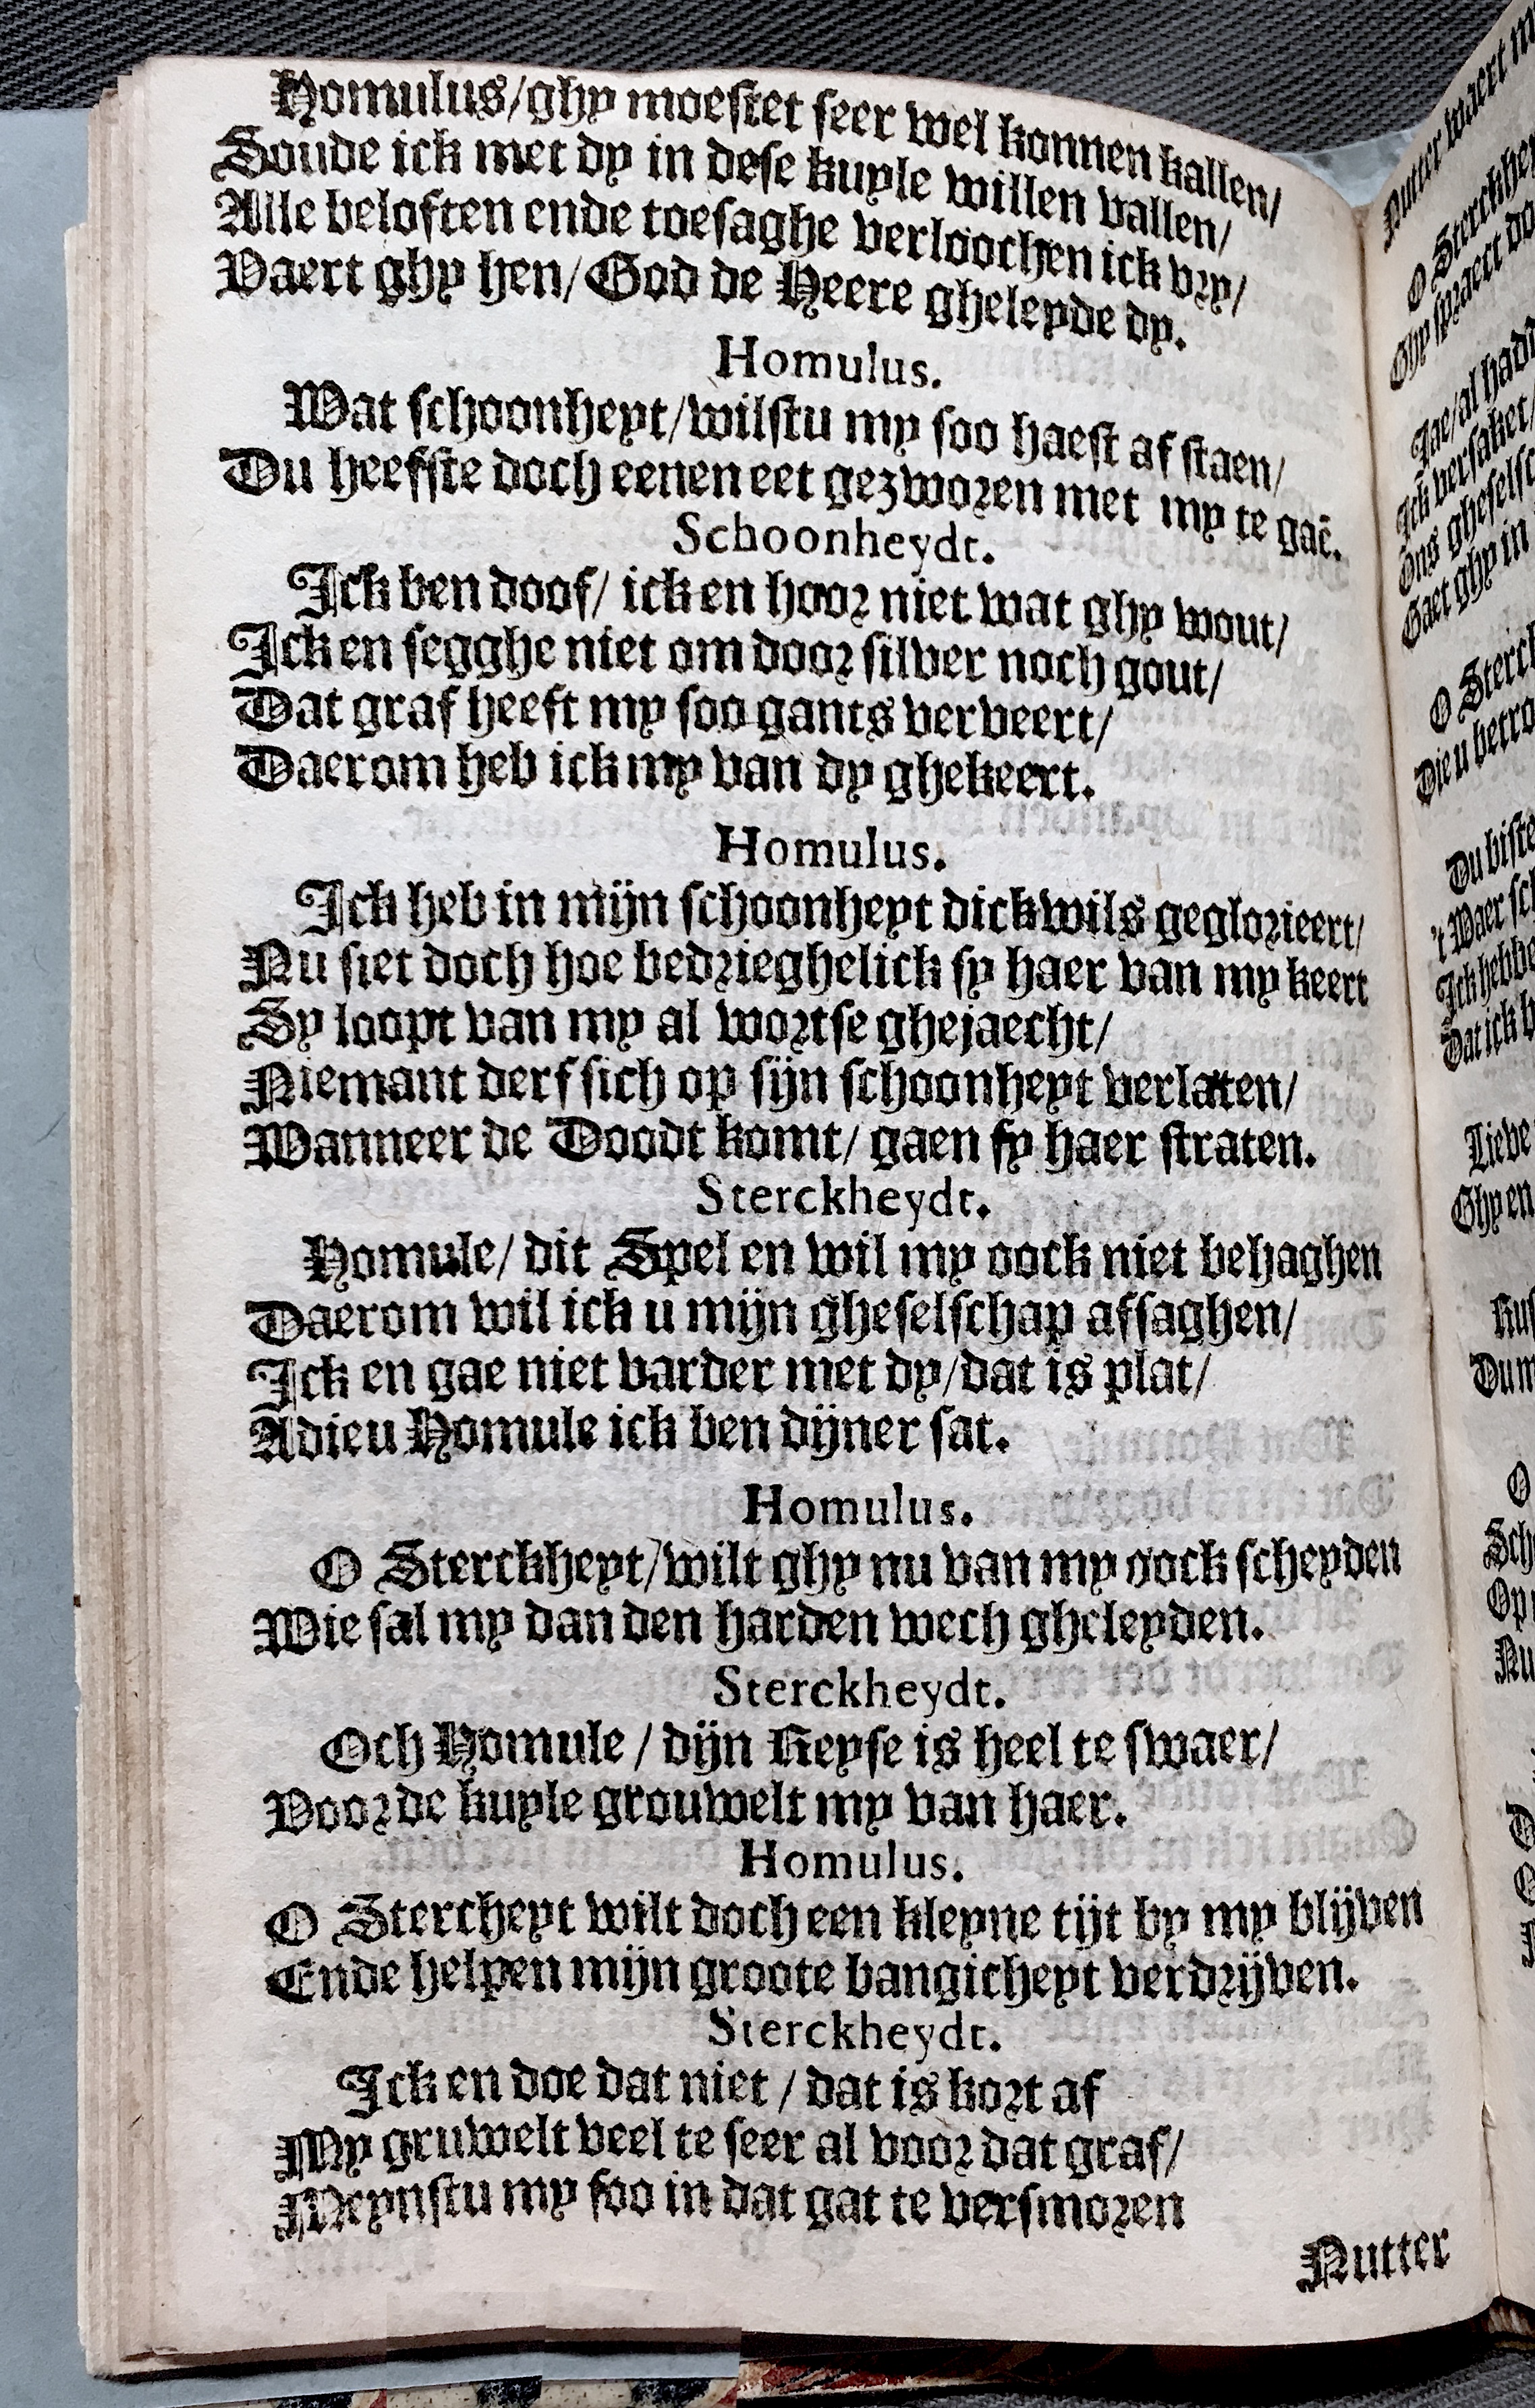 Homulus/ghy moestet seer wel konnen kallen/
Soude ick met dy in dese kuyle willen vallen/
Alle beloften ende toesaghe verloochen ick vry/
Vaert ghy hen/God de Heere gheleyde dy.
Homulus.
Wat schoonheyt/wilstu my soo haest af staen/
Du heefste doch eenen eet gezworen met my te gaē.
Schoonheydt.
Ick ben doof/ ick en hoor niet wat ghy wout/
Ick en segghe niet om door silver noch gout/
Dat graf heeft my soo gants verveert/
Daerom heb ick my van dy ghekeert.
Homulus.
Ick heb in mijn schoonheyt dickwils geglorieert/
Nu siet doch hoe bedrieghelick sy haer van my keert
Sy loopt van my al wortse ghejaecht/
Niemant derf sich op sijn schoonheyt verlaten/
Wanneer de Doodt komt/ gaen sy haer straten.
Sterckheydt.
Homule/ dit Spel en wil my oock niet behaghen
Daerom wil ick u mijn gheselschap afsaghen/
Ick en gae niet varder met dy/dat is plat/
Adieu Homule ick ben dijner sat.
Homulus.
O Sterckheyt/wilt ghy nu van my oock scheyden
Wie sal my dan den harden wech gheleyden.
Sterckheydt.
Och Homule / dijn Reyse is heel te swaer/
Voor de kuyle grouwelt my van haer.
Homulus.
O Stercheyt wilt doch een kleyne tijt by my blijven
Ende helpen mijn groote bangicheyt verdrijven.
Sterckheydt.
Ick en doe dat niet / dat is kort af
My gruwelt veel te seer al voor dat graf/
Meynstu my soo in dat gat te versmoren
Nutter
Nutter waert
O
Ghy spraect
Jae/al
Ick versaket/
Ons
Gaet ghy in
O
Die u
Du biste
't Waer
Ick hebbe
Dat ick
Lieve
Ghy en
O